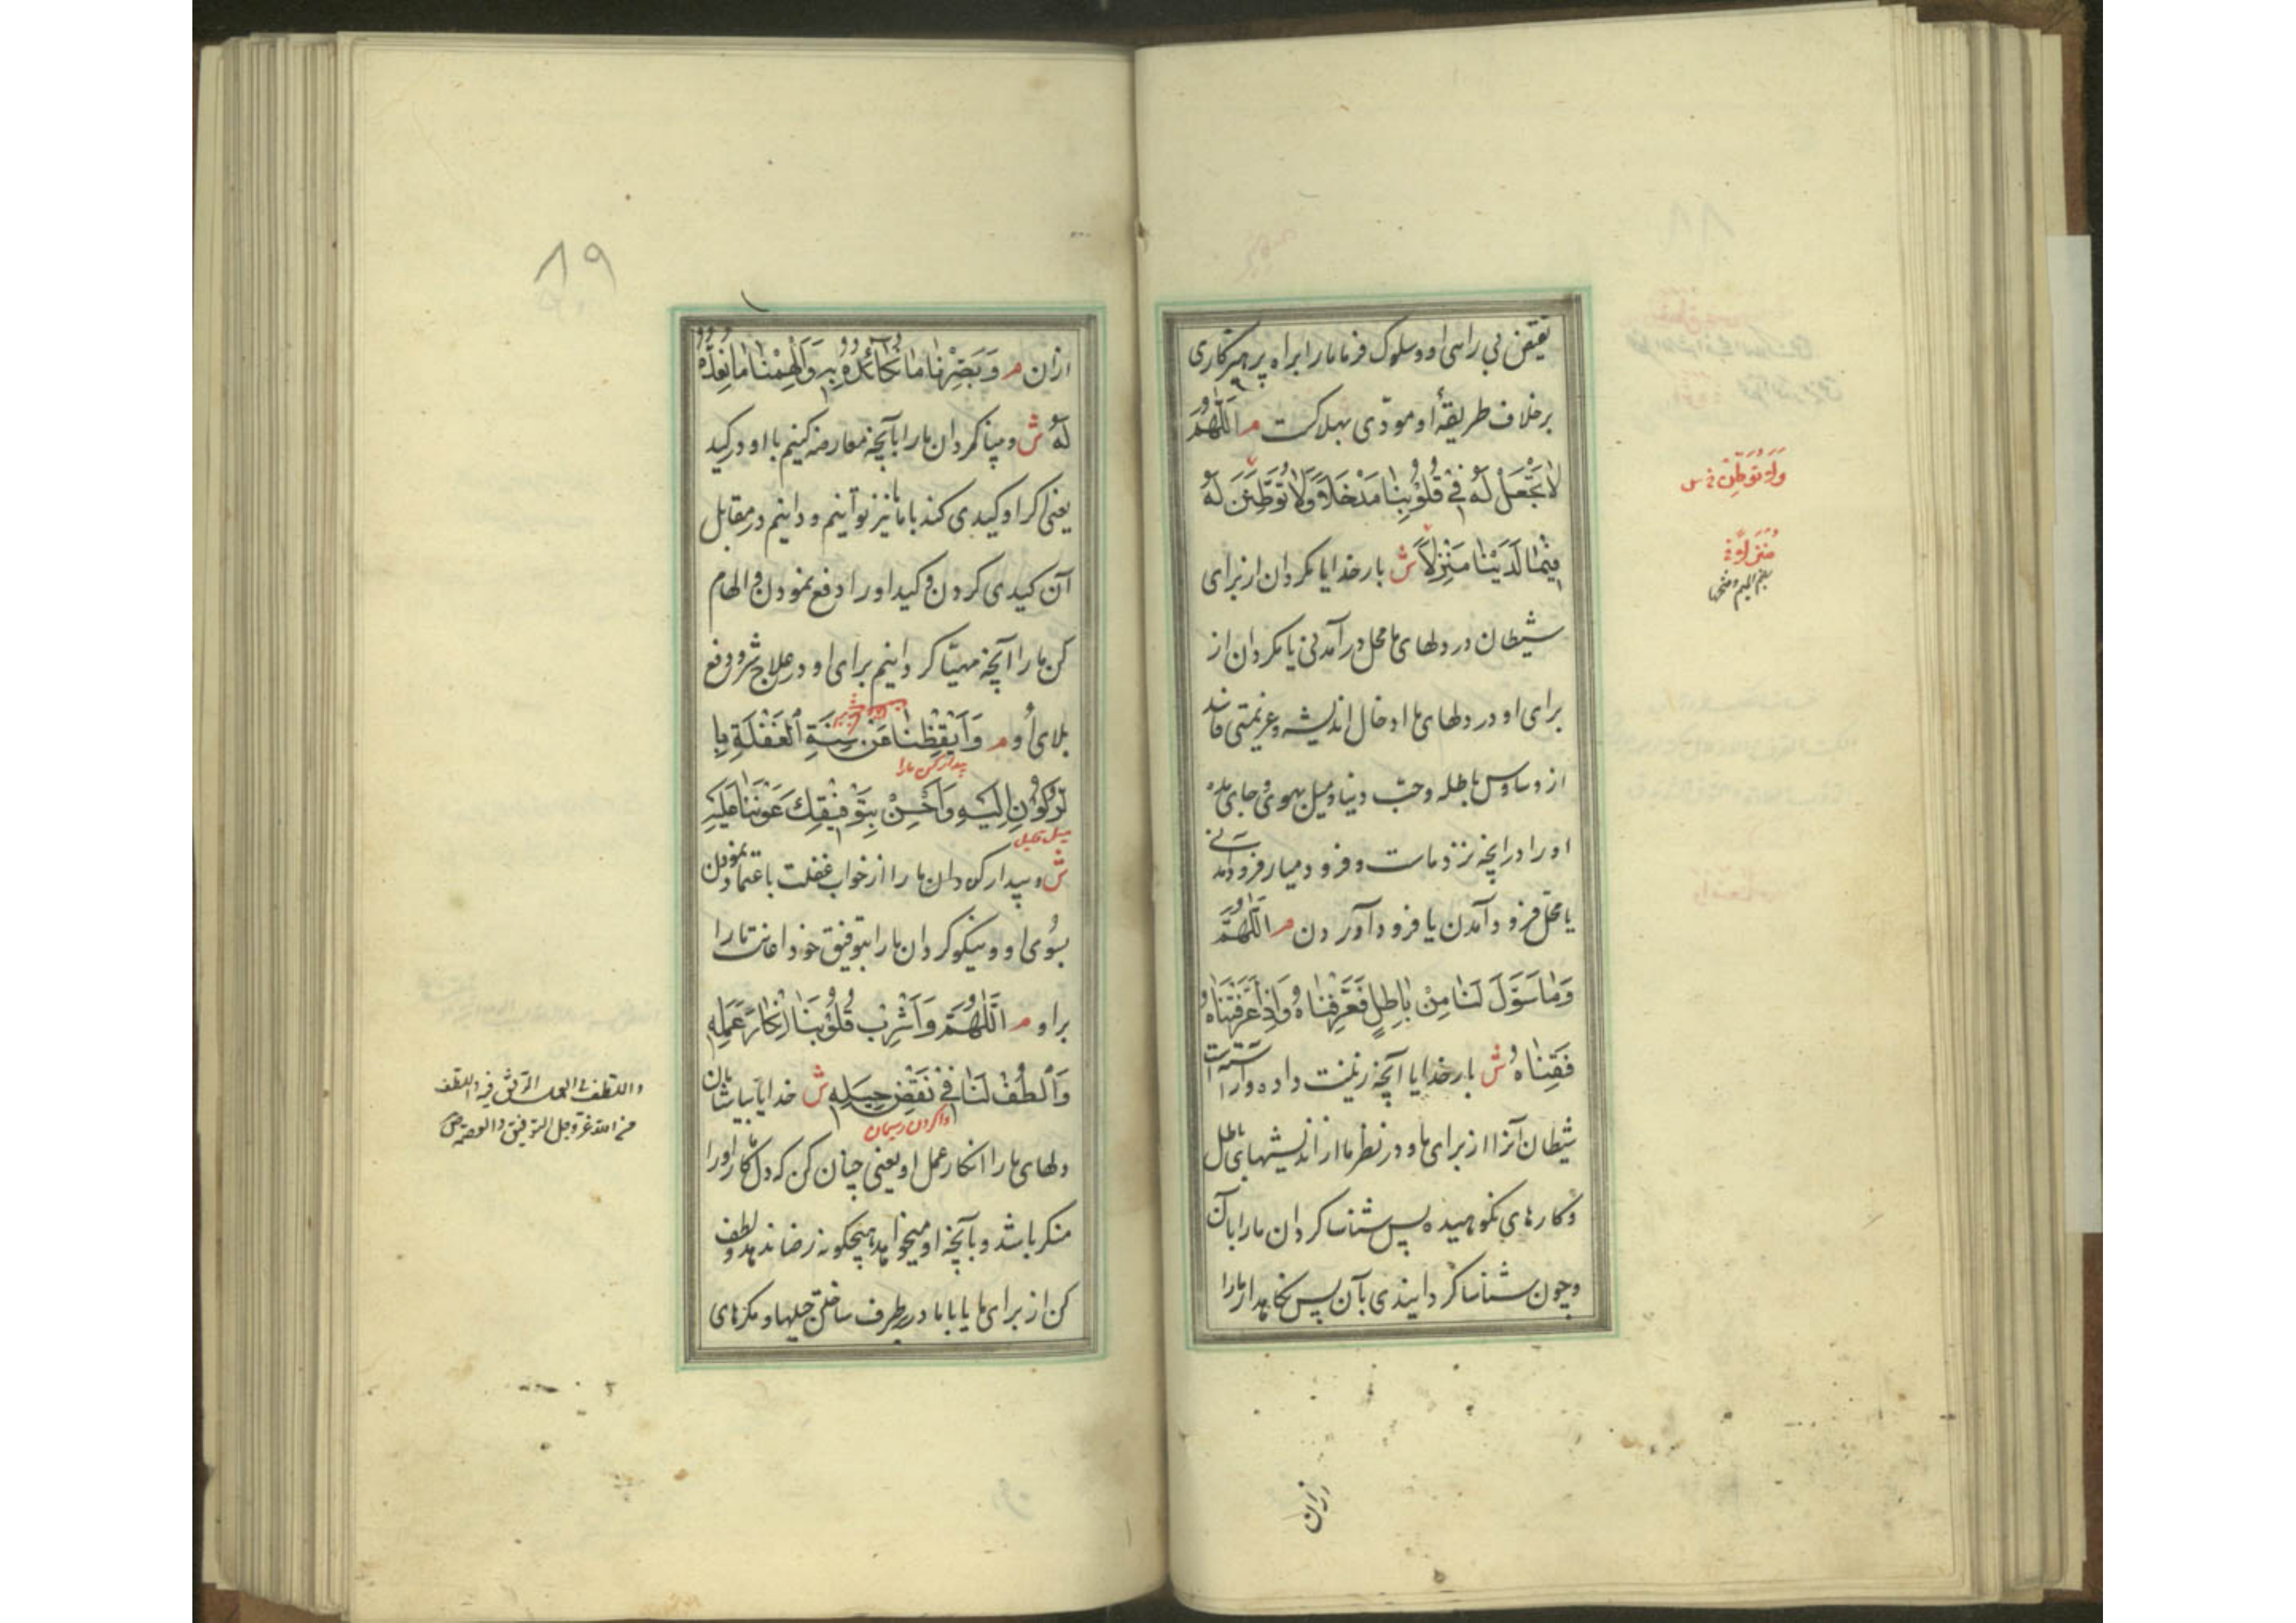 نقیض بی راهی او و سلوک فرما ما را براه پرهیزکاری
بر خلاف طریقهٔ او مودّی بهلاکت م اَللّٰهُمَّ
لاٰ تَجْعَلْ لَهُ فِی قُلُوْبِنٰا مَدْخَلاً وَلاٰ تُوَطِّنَنَّ لَهُ
فِیْمٰا لَدَیْنٰا مَنْزِلاً ش بار خدایا مگردان از برای
شیطان در دلهای ما محل درآمدنی یا مگردان از
برای او در دلهای ما ادخال اندیشه و عزیمتی فاسد
از وساوس باطله و حبّ دنیا و میل بهوی و جای مده
او را در آنچه نزد ماست و فرود میار فرود آمدنی
یا محلّ فرود آمدن یا فرود آوردن م اَللّٰهُمَّ
وَمٰا سَوَّلَ لَنٰا مِنْ بٰاطِلٍ فَعَرِّفْنٰاهُ وَاِذٰا عَرَّفْتَنٰاهُ
فَقِنٰاهُ ش بار خدایا آنچه زینت داده و آراسته است
شیطان آنرا از برای ما و در نظر ما از اندیشهای باطل
و کارهای نکوهیده پس شناسا کردان ما را بآن
و چون شناسا کردانیدی بآن پس نگاهدار ما را
وَلاٰ تُوَطِّنَنَّ س
مُنْزَلاً
بضم المیم و فتحها
ازان
۸۹
ازان م وَبَصِّرْنٰا مٰا نُکٰائِدُهُ بِهِ وَاَلْهِمْنٰا مٰا نُعِدُّهُ
لَهُ ش و بینا کردان ما را بآنچه معارضه کنیم با او در کید
یعنی اکر او کیدی کند با ما نیز توانیم و دانیم در مقابل
آن کیدی کردن و کید او را دفع نمودن و الهام
کن ما را آنچه مهیّا کردانیم برای او در علاج شرّ و دفع
بلای او م وَاَیْقِظْنٰا عَنْ سِنَةِ الْغَفْلَةِ بِا
بیدار کن ما را
لرُّکُوْنِ اِلَیْهِ وَاَحْسِنْ بِتَوْفِیْقِكَ عَوْنَنٰا عَلَیْهِ
میل قلیل
ش و بیدار کردان ما را از خواب غفلت باعتماد نمودن
بسوی او و نیکو کردان ما را بتوفیق خود اعانت ما را
بر او م اَللّٰهُمَّ وَاَشْرِبْ قُلُوْبَنٰا اِنْکٰارَ عَمَلِهِ
وَالْطُفْ لَنٰا فِی نَقْضِ حِیَلِهِ ش خدایا بیاشامان
واکردن ریسمان
دلهای ما را انکار عمل او یعنی چنان کن که دل ما کار او را
منکر باشد و بآنچه او میخواهد هیچکونه رضا ندهد و لطف
کن از برای ما یا با ما در برطرف ساختن حیلها و مکرهای
واللطف فی العمل الرفق فیه واللطف
من الله عزّ وجل التوفیق والعصمة ص